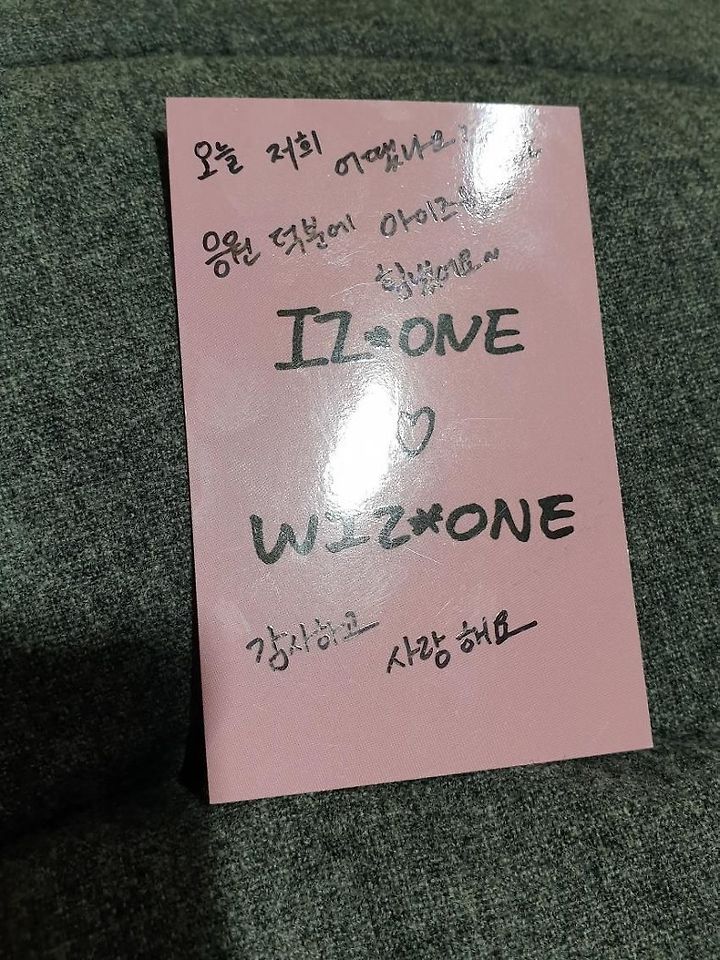 오늘 저희 어땠나요?
응원 덕분에 아이즈원
힘났어요~
IZ*ONE
♡
WIZ*ONE
감사하고 사랑해요